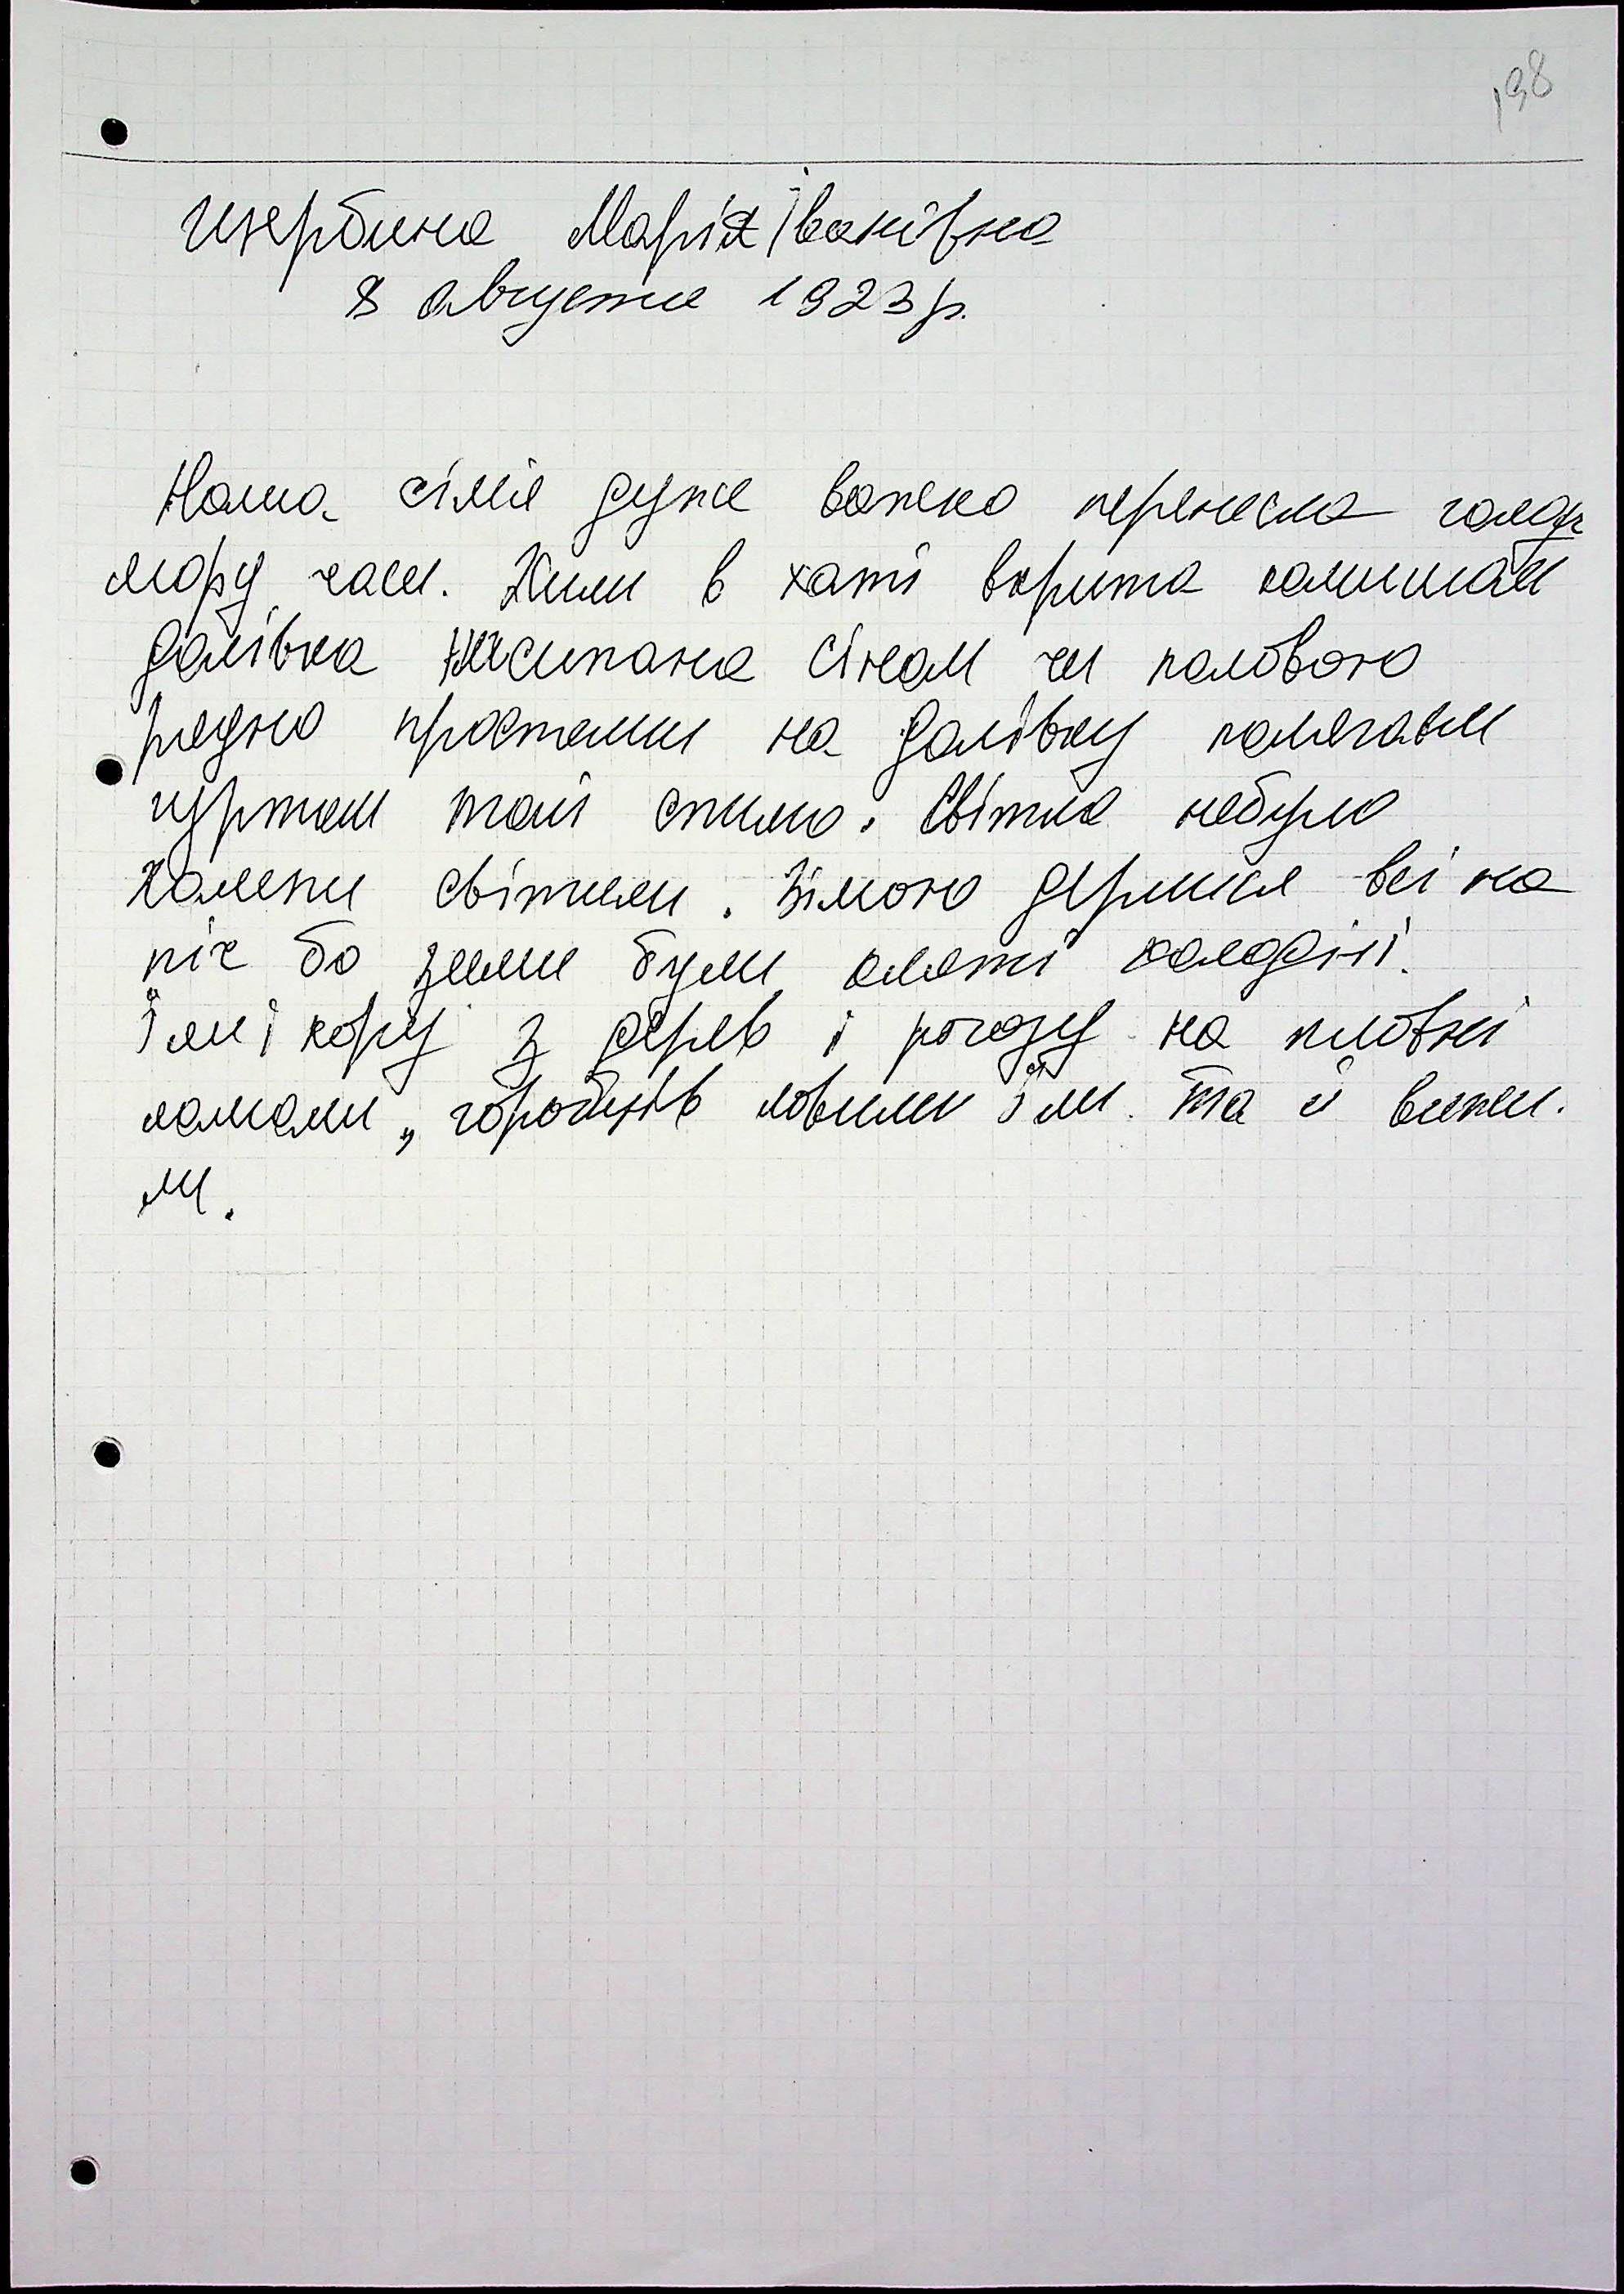 198
Щербина Марія Іванівна
8 августа 1923 р.
Наша сімя дуже важко перенесла голодо
мору часи. Жили в хаті вкрита камишом
далівка насипана сіном чи половою
рядно простели на далівку полягали
гуртом таї спимо. Світла небуло
каменц світили. Зімою держися всі на
піч бо зими були люті холодні.
їли кору з дерев і рогозу на плавні
ламали, горобців ловили їли та й вижи.
ли.